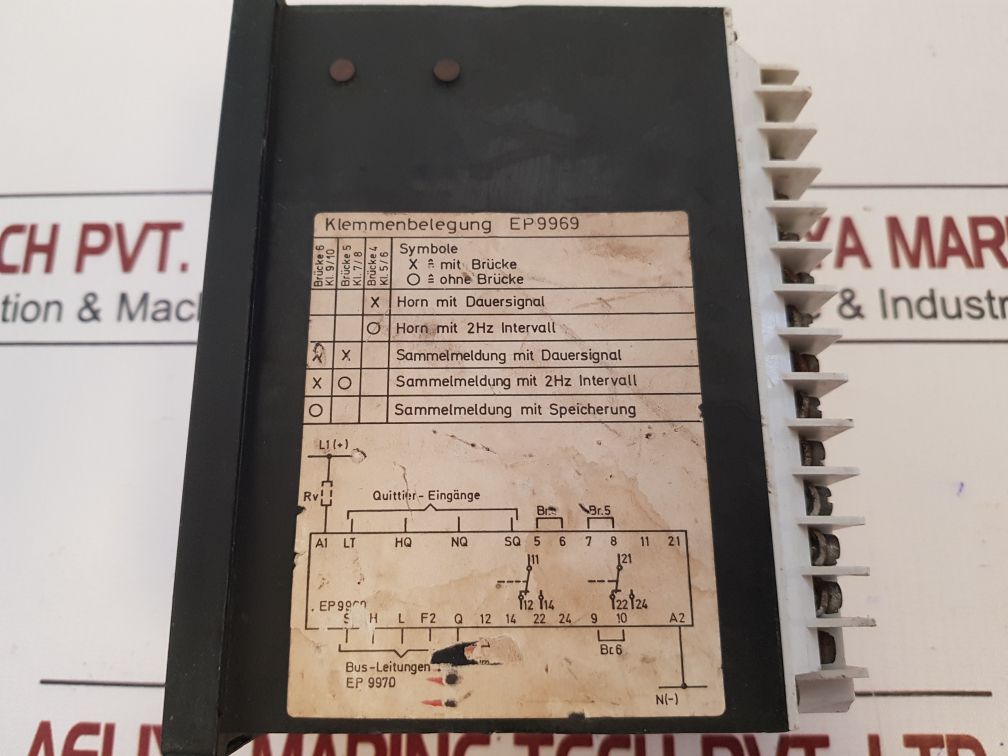 Klemmenbelegung EP9969
Brücke 6
Kl. 9/10
Brücke 5
Kl. 7/8
Brücke 4
Kl. 5/6
Symbole
X ≙ mit Brücke
O ≙ ohne Brücke
X Horn mit Dauersignal
O Horn mit 2Hz Intervall
X X Sammelmeldung mit Dauersignal
X O Sammelmeldung mit 2Hz Intervall
O Sammelmeldung mit Speicherung
L1(+)
Rv
Quittier-Eingänge
Br.5
A1 LT HQ NQ SQ 5 6 7 8 11 21
11 21
12 14 22 24
EP99
S H L F2 Q 12 14 22 24 9 10 A2
Br.6
Bus-Leitungen
EP 9970
N(-)
CH PVT.
YA MAR
tion & Mac
& Industr
MARINE TECH PVT. LTD